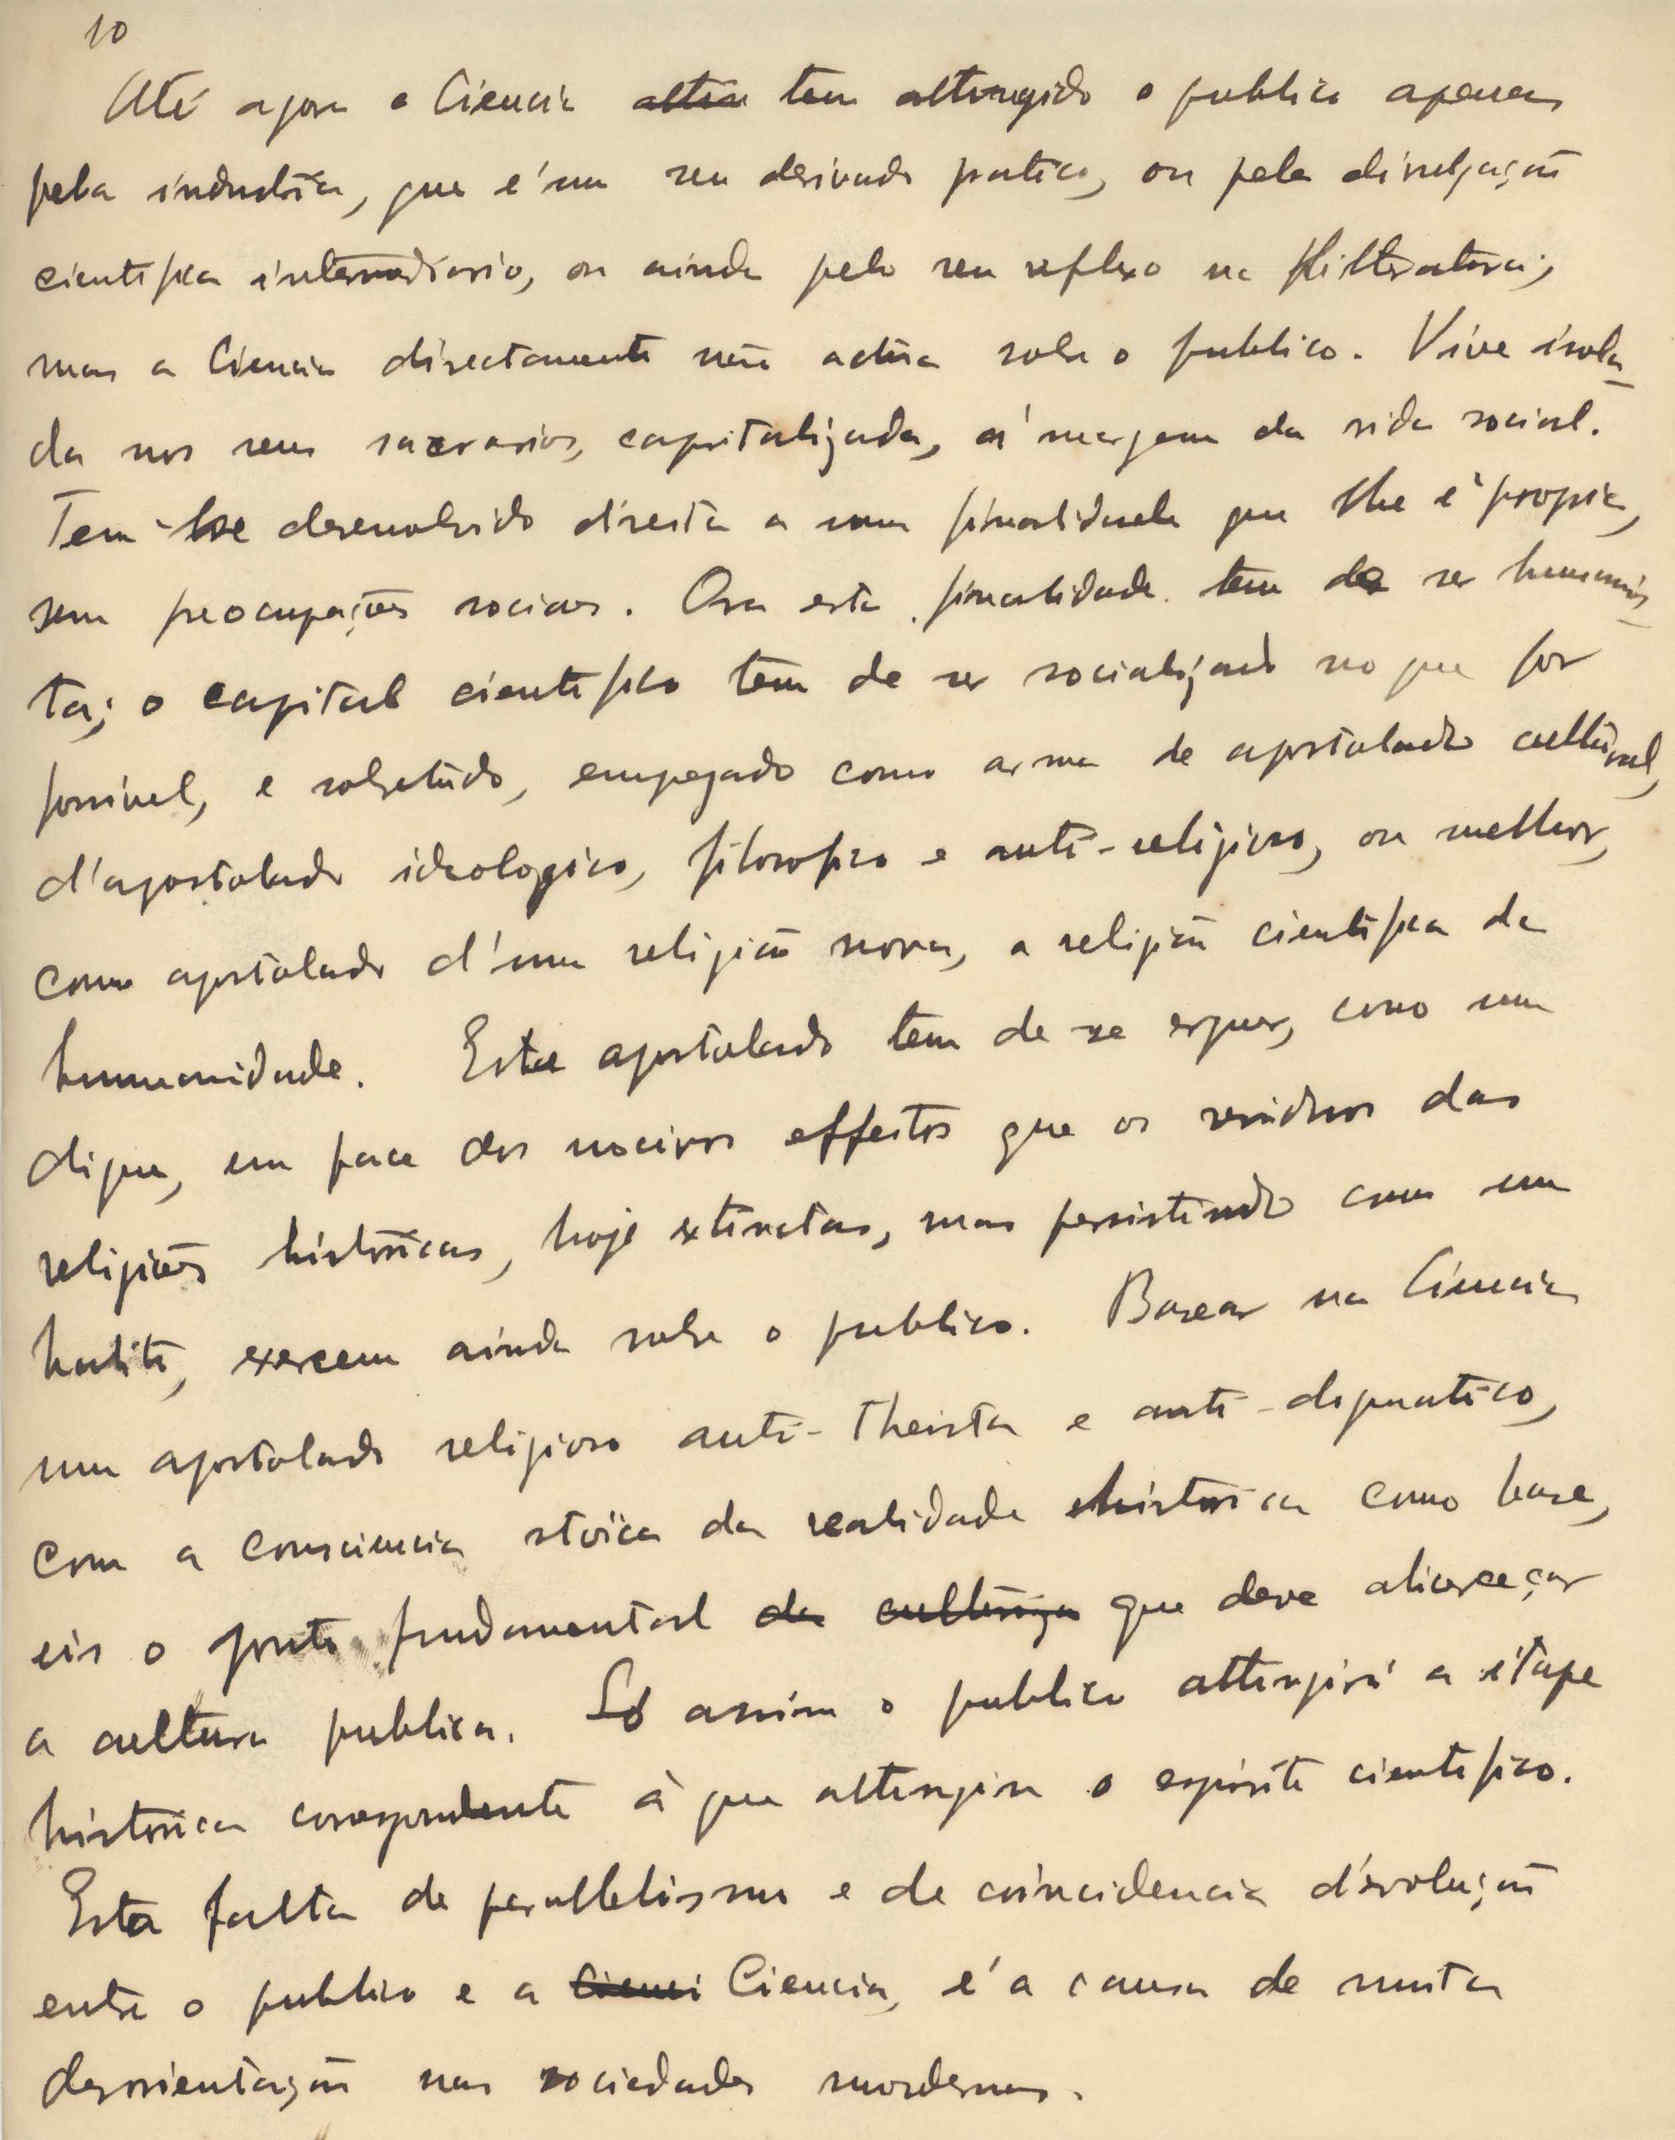 10
Até agora a Ciencia attin tem attingido o publico apenas
pela industria, que é um seu derivado pratico, ou pela divulgação
cientifica intermediario, ou ainda pelo seu reflexo na litteratura;
mas a Ciencia directamente não actúa sobre o publico. Vive isola-
da nos seus sacrarios, capitalizada, á margem da vida social.
Tem-se desenvolvido direita a uma finalidade que lhe é propria,
sem preocupações sociaes. Ora esta finalidade tem de ser humanis-
ta; o capital cientifico tem de ser socializado no que for
possivel, e sobretudo, empregado como arma de apostolado cultural,
d'apostolado ideologico, filosofico e anti-religioso, ou melhor,
como apostolado d'uma religião nova, a religião cientifica da
humanidade. Este apostolado tem de se erguer, como um
dique, em face dos nocivos effeitos que os residuos das
religiões históricas, hoje extinctas, mas persistindo como um
habito, exercem ainda sobre o publico. Basear na Ciencia
um apostolado religioso anti-theista e anti-dogmatico,
com a consciencia stoica da realidade historica como base,
eis o ponto fundamental da que deve alicerceçar
a cultura publica. Só assim o publico attingirá a étape
histórica correspondente à que attingira o espirito cientifico.
Esta falta de parallelismo e de coincidencia d'evolução
entre o publico e a Cienci Ciencia, é a causa de muita
desorientação nas sociedades modernas.